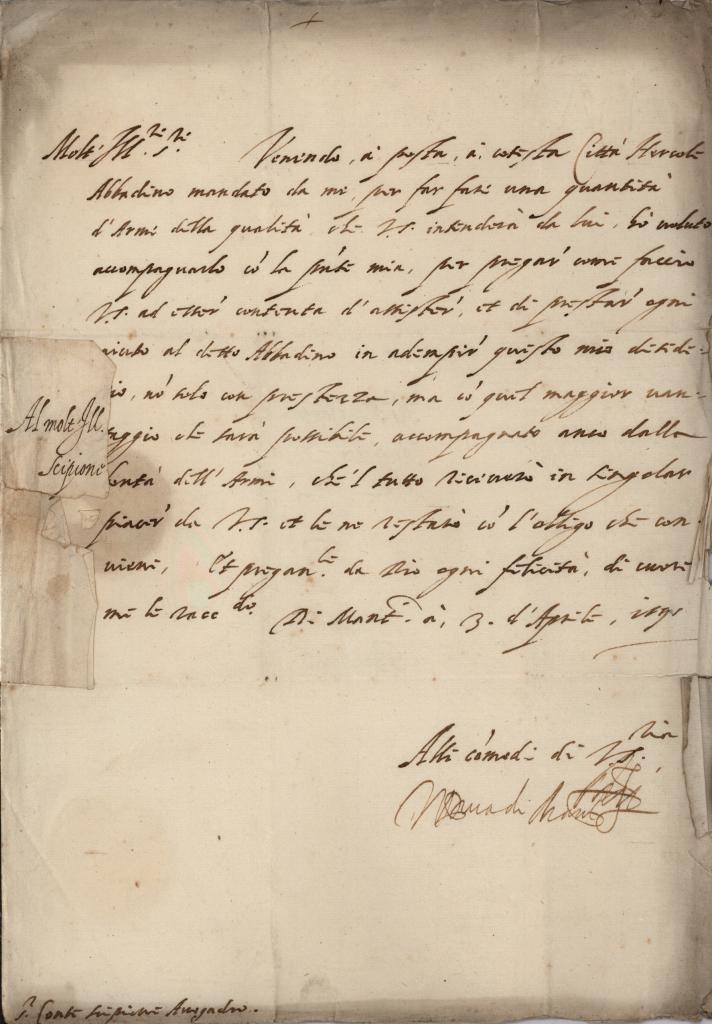 Molt' Ill.re s.re Venendo, à posta, à, cotesta Città Hercole
Abbadino mandato da me, per far fare una quantità
d'Armi della qualità che V.S. intenderà da lui, hò voluto
accompagnarlo cō la pñte mia, per pregar' come faccio
V.S. ad esser' contenta d'assister', et di prestar' ogni
aiuto al detto Abbadino in adempir' questo mio deside=
io, nō solo con prestezza, ma cō quel maggior van=
taggio che sarà possibile, accompagnato anco dalla
bontà dell'Armi, che'l tutto riceverò in singolar
piacer' da V.S. et le ne restarò cō l'obligo che con
viene, Et pregan.le da Dio ogni felicità, di cuore
me le racc.do Di Mant.a à, 3. d'Aprile, 159
Al molt' Ill.
Scipione
Alli cōmodi di V.S.
di
s.r Conte Scipione Avogadro.